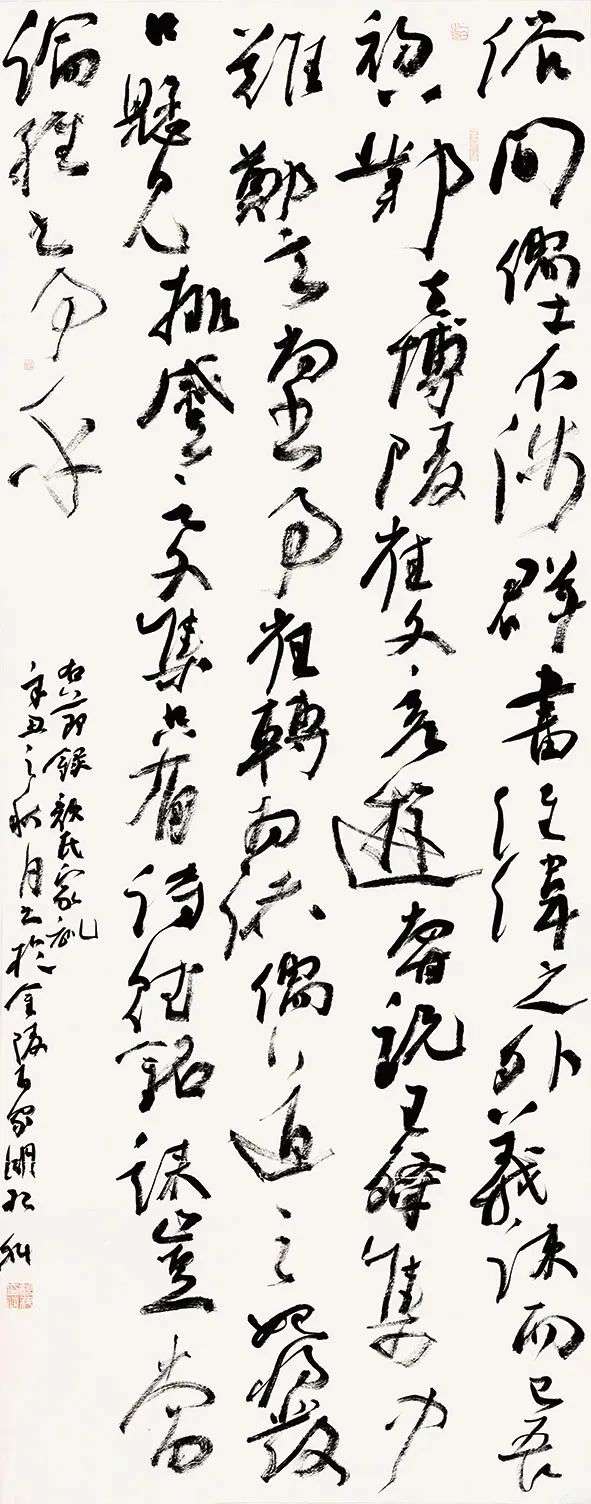 俗間儒士不涉群書經緯之外義疏而已吾
初入鄴與博陵崔文彥遊嘗說王粲集中
難鄭玄尚書事崔轉為諸儒道之始將發
口懸見排蹙云文集只有詩賦銘誄豈當
論經書事乎
右節錄顏氏家訓
辛丑之秋月書於金陵百家湖